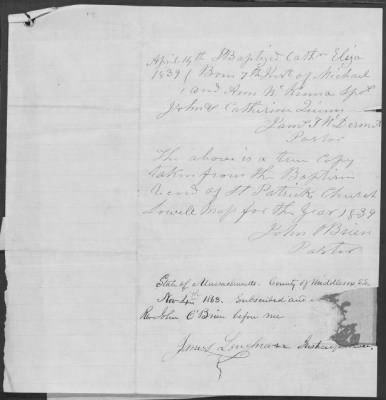 April 14th I Baptized Cathn Eliza
1839 { Born 7th Inst of Michael
and Ann McKinna Spr
John & Catherine Quinn
Jams T McDermott
Pastor
The above is a true copy
taken from the Baptism
record of St Patricks Church
Lowell Mass for the Year 1839
John O'Brien
Pastor
State of Massachusetts. County of Middlesex S.S.
Nov 4th 1863. Subscribed and
Rev John O'Brien before me
James